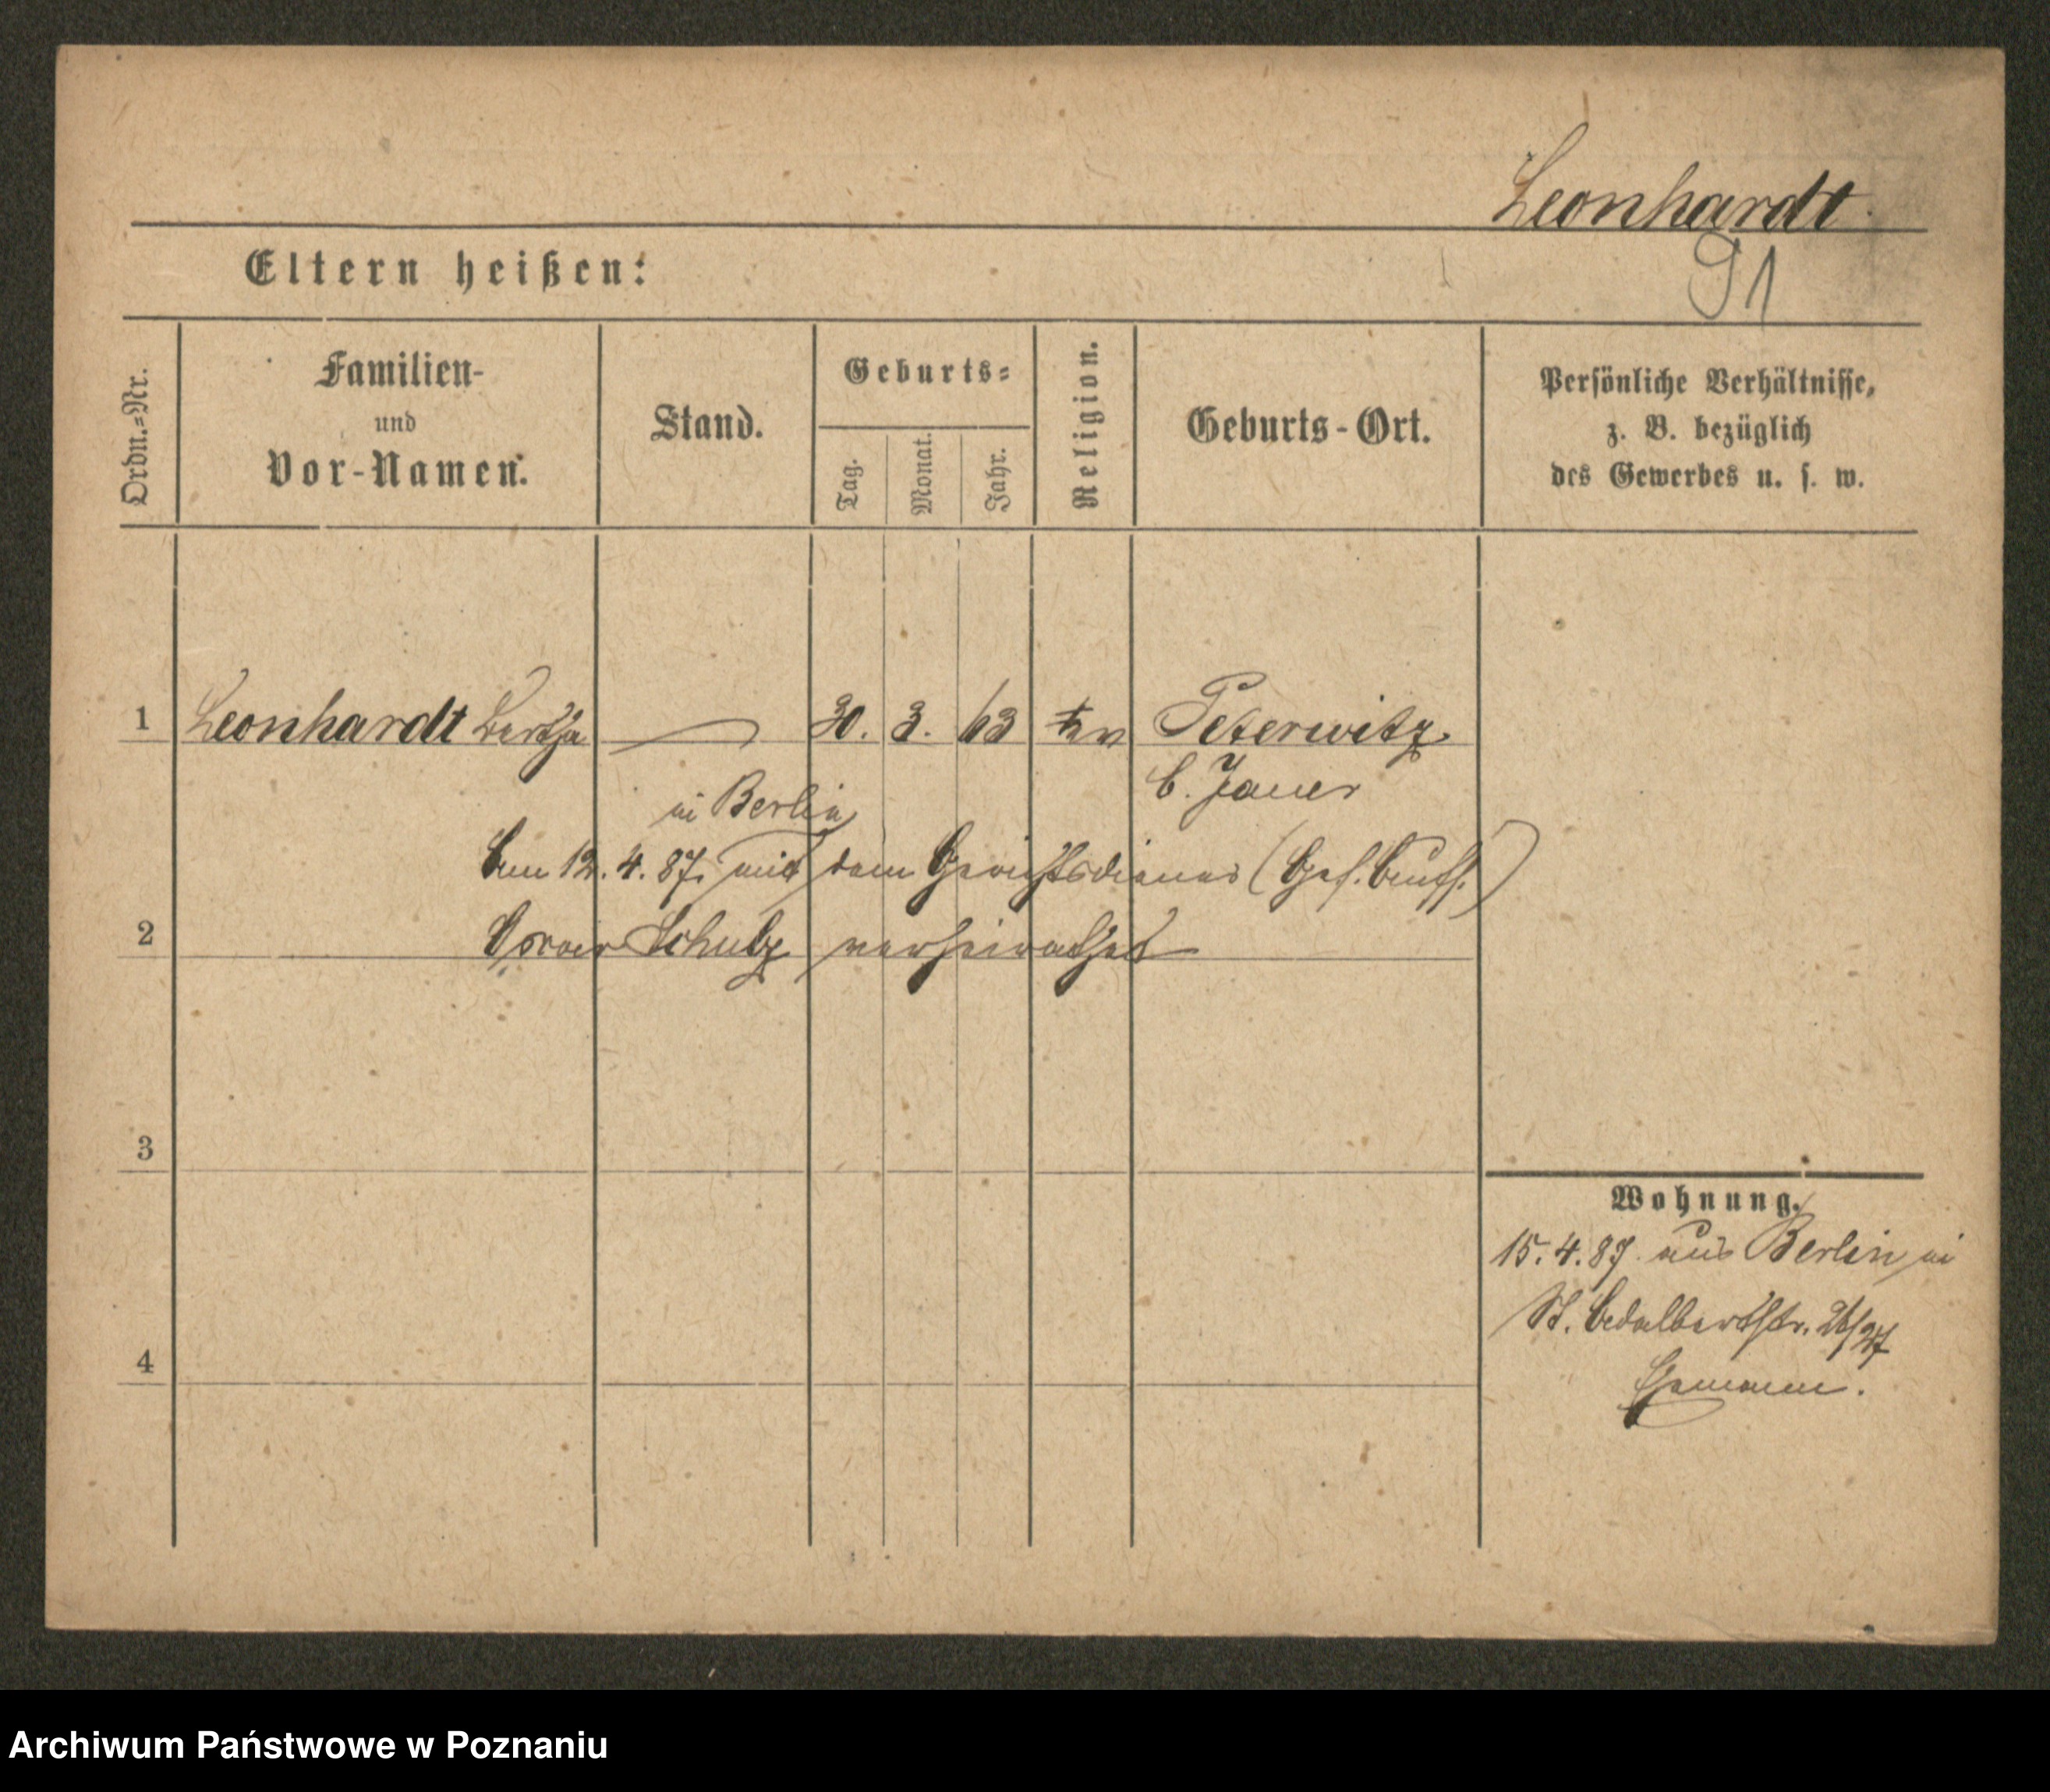 Leonhardt.
91
Eltern heißen:
Ordn.-Nr.
Familien-
und
Vor-Namen.
Stand.
Geburts-
Tag.
Monat.
Jahr.
Religion.
Geburts-Ort.
Persönliche Verhältnisse,
z. B. bezüglich
des Gewerbes u. s. w.
1 Leonhardt Bertha 30. 3. 63 ev Peterwitz
b. Jauer
in Berlin
Am 12. 4. 87. mit dem Gerichtsdiener
2 Schulz verheirathet
3
Wohnung.
15. 4. 87 aus Berlin in
St. Adalbertstr. 26/27
4
Ehemann.
Archiwum Państwowe w Poznaniu